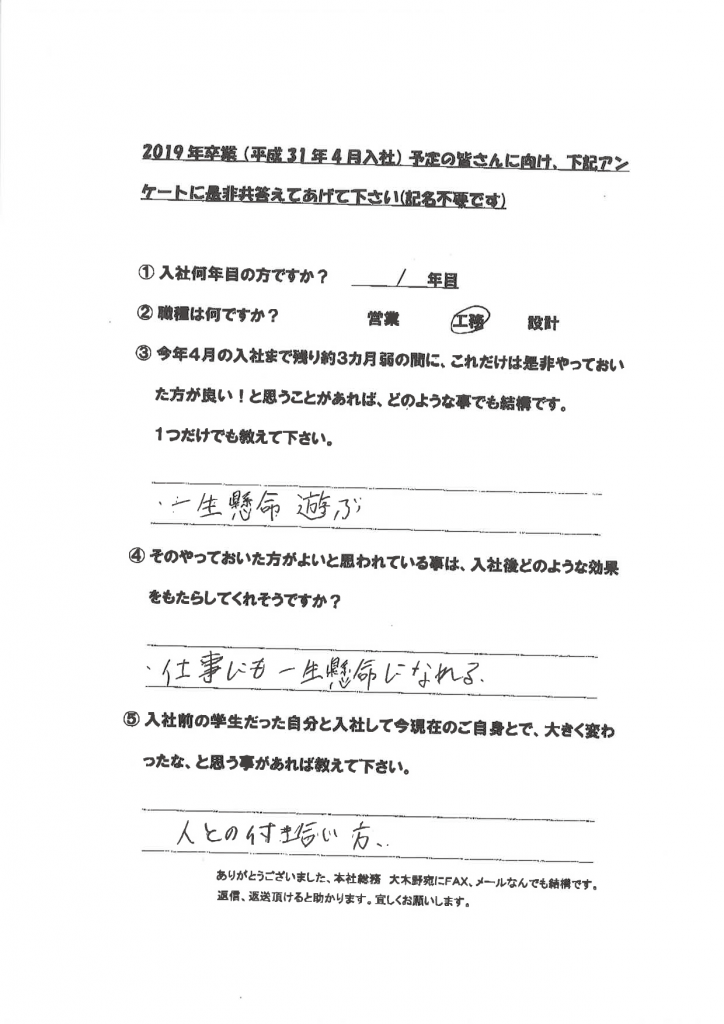 2019年卒業（平成31年4月入社）予定の皆さんに向け、下記アン
ケートに是非共答えてあげて下さい(記名不要です)
① 入社何年目の方ですか？ 1 年目
② 職種は何ですか？ 営業 工務 設計
③ 今年4月の入社まで残り約3カ月弱の間に、これだけは是非やっておい
た方が良い！と思うことがあれば、どのような事でも結構です。
1つだけでも教えて下さい。
・一生懸命 遊ぶ
④ そのやっておいた方がよいと思われている事は、入社後どのような効果
をもたらしてくれそうですか？
・仕事にも一生懸命になれる。
⑤ 入社前の学生だった自分と入社して今現在のご自身とで、大きく変わ
ったな、と思う事があれば教えて下さい。
人との付き合い方、
ありがとうございました、本社総務 大木野宛にFAX、メールなんでも結構です。
返信、返送頂けると助かります。宜しくお願いします。